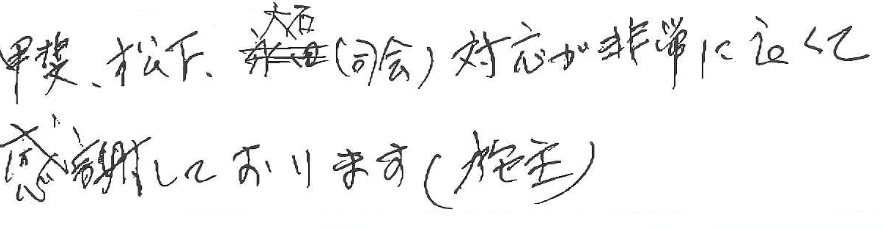 甲斐、松下、大石(司会)対応が非常に良くて
感謝しております(施主)